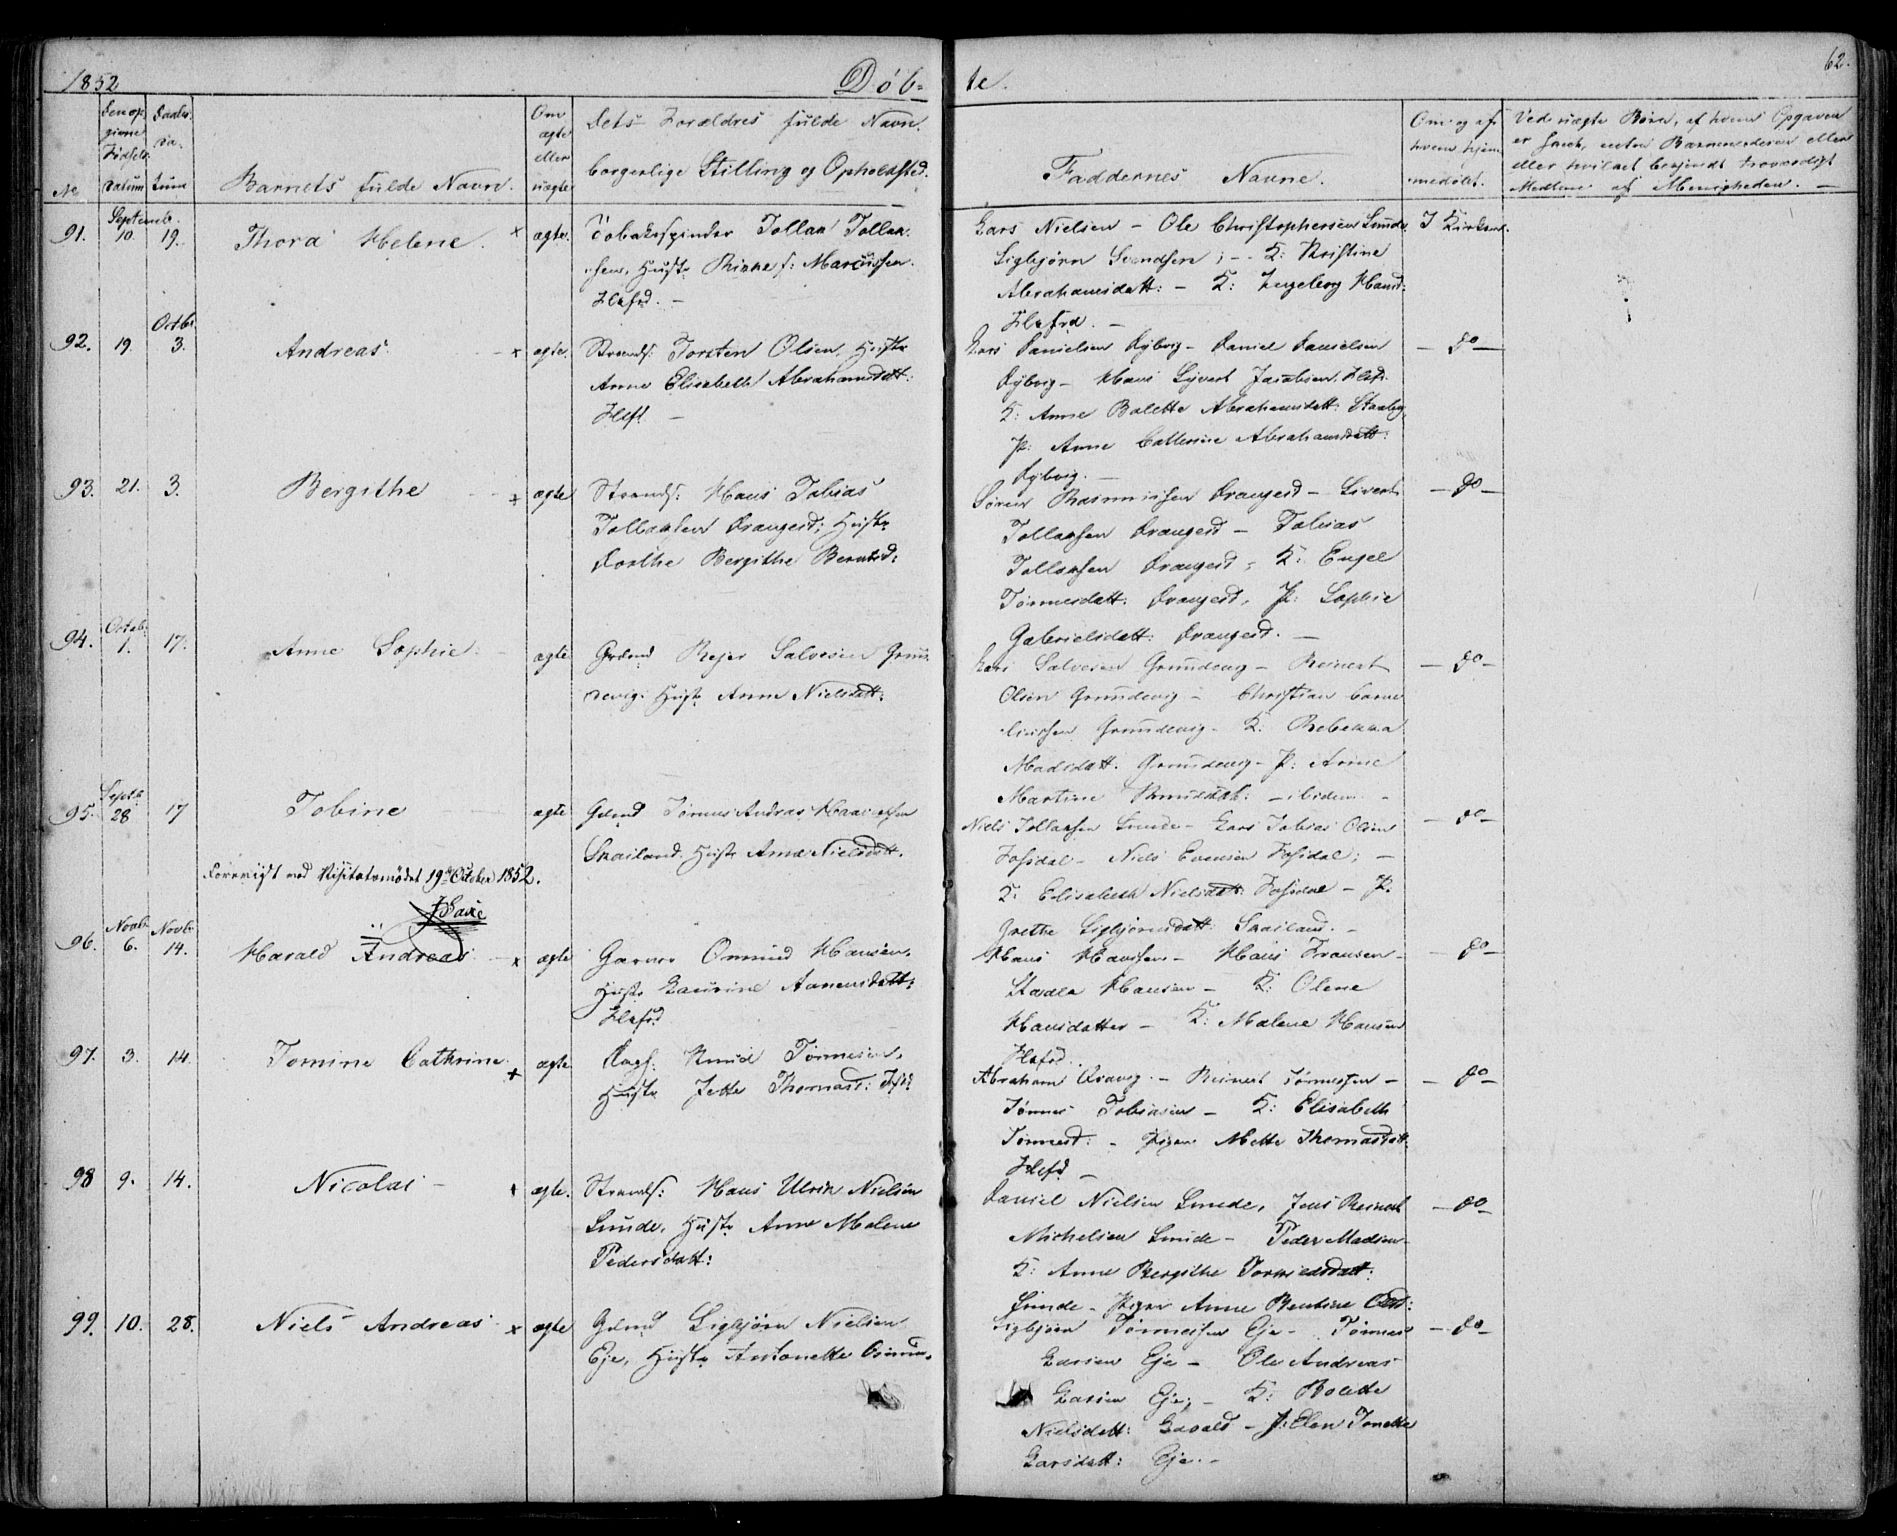 1852 Døb- te. 62.
No
Den op
givne
Fødsels
Datum
Daabs
da-
tum
Barnets fulde Navn.
Om
ægte
eller
uægte
Dets Forældres fulde Navn.
borgerlige Stilling og Opholdsted.
Faddernes Navne.
Om og af
hvem hjem
medøbt.
Ved uægte Børn, af hvem Opgaven
er skeet, enten Barnemoderen eller
eller hvilket bosiddende troværdigt
Medlem af Menigheden. —
91. Septemb. 10. 19. Thora Helene. x ægte.
Tobaksspinder Tollak Tollak-
sen, Hustr Rikke f: Marcussen.
Flekfd. —
Lars Nielsen — Ole Christophersen Lunde
Sigbjørn Svendsen; — K: Kristine
Abrahamsdatt: — K: Ingeborg Hansd:
Flekfrd. —
I Kirken.
92. 19. Octbr. 3. Andreas. x ægte.
Strands: Torsten Olsen, Hustr
Anne Elisabeth Abrahamsdatt:
Flkf. —
Lars Danielsen Dybvig — Daniel Danielsen
Dybvig — Hans Syvert Jacobsen, Flkf.
K: Anne Bolette Abrahamsdatt:
P: Anne Cathrine Abrahamsdatt:
Dybvig. —
— do —
93. 21. 3. Bergithe x ægte
Strands: Hans Tobias
Tollaksen Drangesd; Hustr
Dorthe Bergithe Berntsd:
Søren Rasmussen Drangesd — Sivert
Tollaksen Drangesd — Tobias
Tollaksen Drangesd; K: Engel
Tønnesdatt: Drangesd, P: Sophie
Gabrielsdatt: Drangesd. —
— do —
94. Octob: 1. 17. Anne Sophie. ægte
Grdmd Rejer Salvesen Grun-
devig. Hustr Anne Nielsdatt:
Lars Salvesen Grundevig — Reinert
Olsen Grundevig — Christian Corne
liussen Grundevig — K: Rebekka
Madsdatt. Grundevig — P: Anne
Martine Knudsdatt: — ibidem —
— do —
95. Septb 28 17 Tobine ægte
Gdmd Tønnes Andreas
Skailand. Hustr Anne Nielsdatt.
Niels Tollaksen Lunde — Lars Tobias Olsen
Josdal — Niels Evensen Josdal; —
K: Elisabeth Nielsdatt: Josdal — P.
Grethe Sigbjørnsdatt: Skailand. —
— do —
Foreviist ved Visitatsmødet 19de October 1852.
96. Novbr. 6. Novbr 14. Harald Andreas x ægte
Garver Ommund Hansen,
Hustr Laurine Aanensdatt:
Flekfd
Hans Hanssen — Hans Fransen —
Hansen — K: Olene
Hansdatter — K: Malene Hansen
Flekfd.
— do —
97. 3. 14. Tomine Cathrine. x ægte
Dags. Knud Tønnesen,
Hustr Jette Thomasd:
Abraham — Reinert Tønnessen —
Tønnes Tobiasen — K: Elisabeth
Tønnesd: — Pigen Mette Thomasdatt.
Flkfd —
— do —
98 9. 14. Nicolai — x ægte.
Strands: Hans Ulrik Nielsen
Lunde, Hustr Anne Malene
Pedersdatt:
Daniel Nielsen Lunde, Jens Reinert
Michelsen Lunde — Peder Madsen —
K: Anne Bergithe
Lunde — Pigen Anne Bentine
— do —
99. 10. 28. Niels Andreas x ægte
Gdmd Sigbjørn Nielsen
Eje, Hustr Antonette
Sigbjørn Tønnessen Eje — Tønnes
Larsen Eje — Ole Andreas
Larsen Eje; — K: Bolette
Nielsdatt: — P: Elen Tonette
Larsdatt: Eje. —
— do —